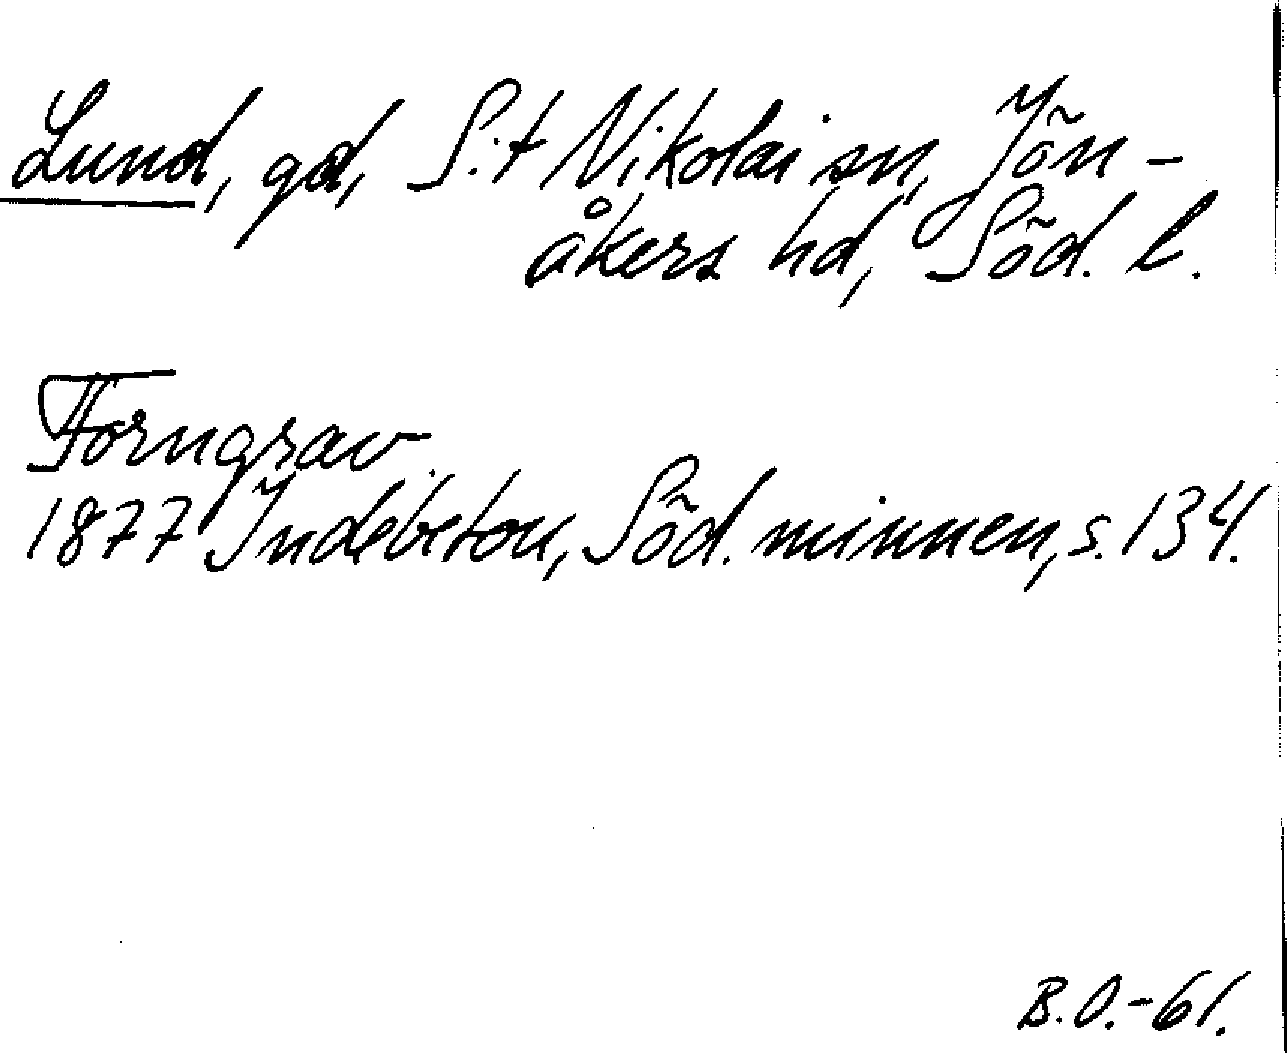 Lund, gd, S:t Nikolai sn, Jön-
åkers hd, Söd. l.
Forngrav
1877 Indebetou, Söd. minnen, s. 134.
B.O.-61.